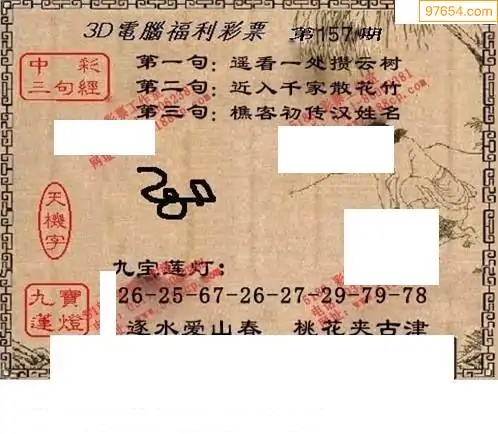 97654.com
3D電腦福利彩票 第157期
中彩
三句經
第一句：遥看一处攒云树
第二句：近入千家散花竹
第三句：樵客初传汉姓名
天機字
九宝莲灯：
九寶蓮燈
26-25-67-26-27-29-79-78
逐水爱山春 桃花夹古津